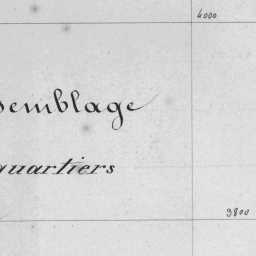 4000
semblage
quartiers
3800